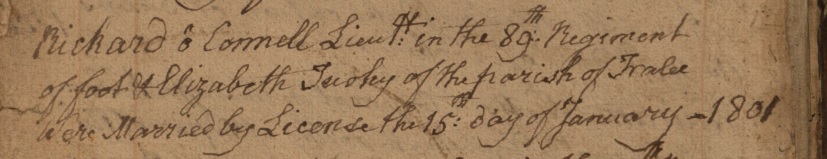 Richard ô Connell Lieu.tt in the 89.th Regiment
of foot & Elizabeth Tuohy of the parish of Tralee
Were Married by License the 15:th day of January - 1801